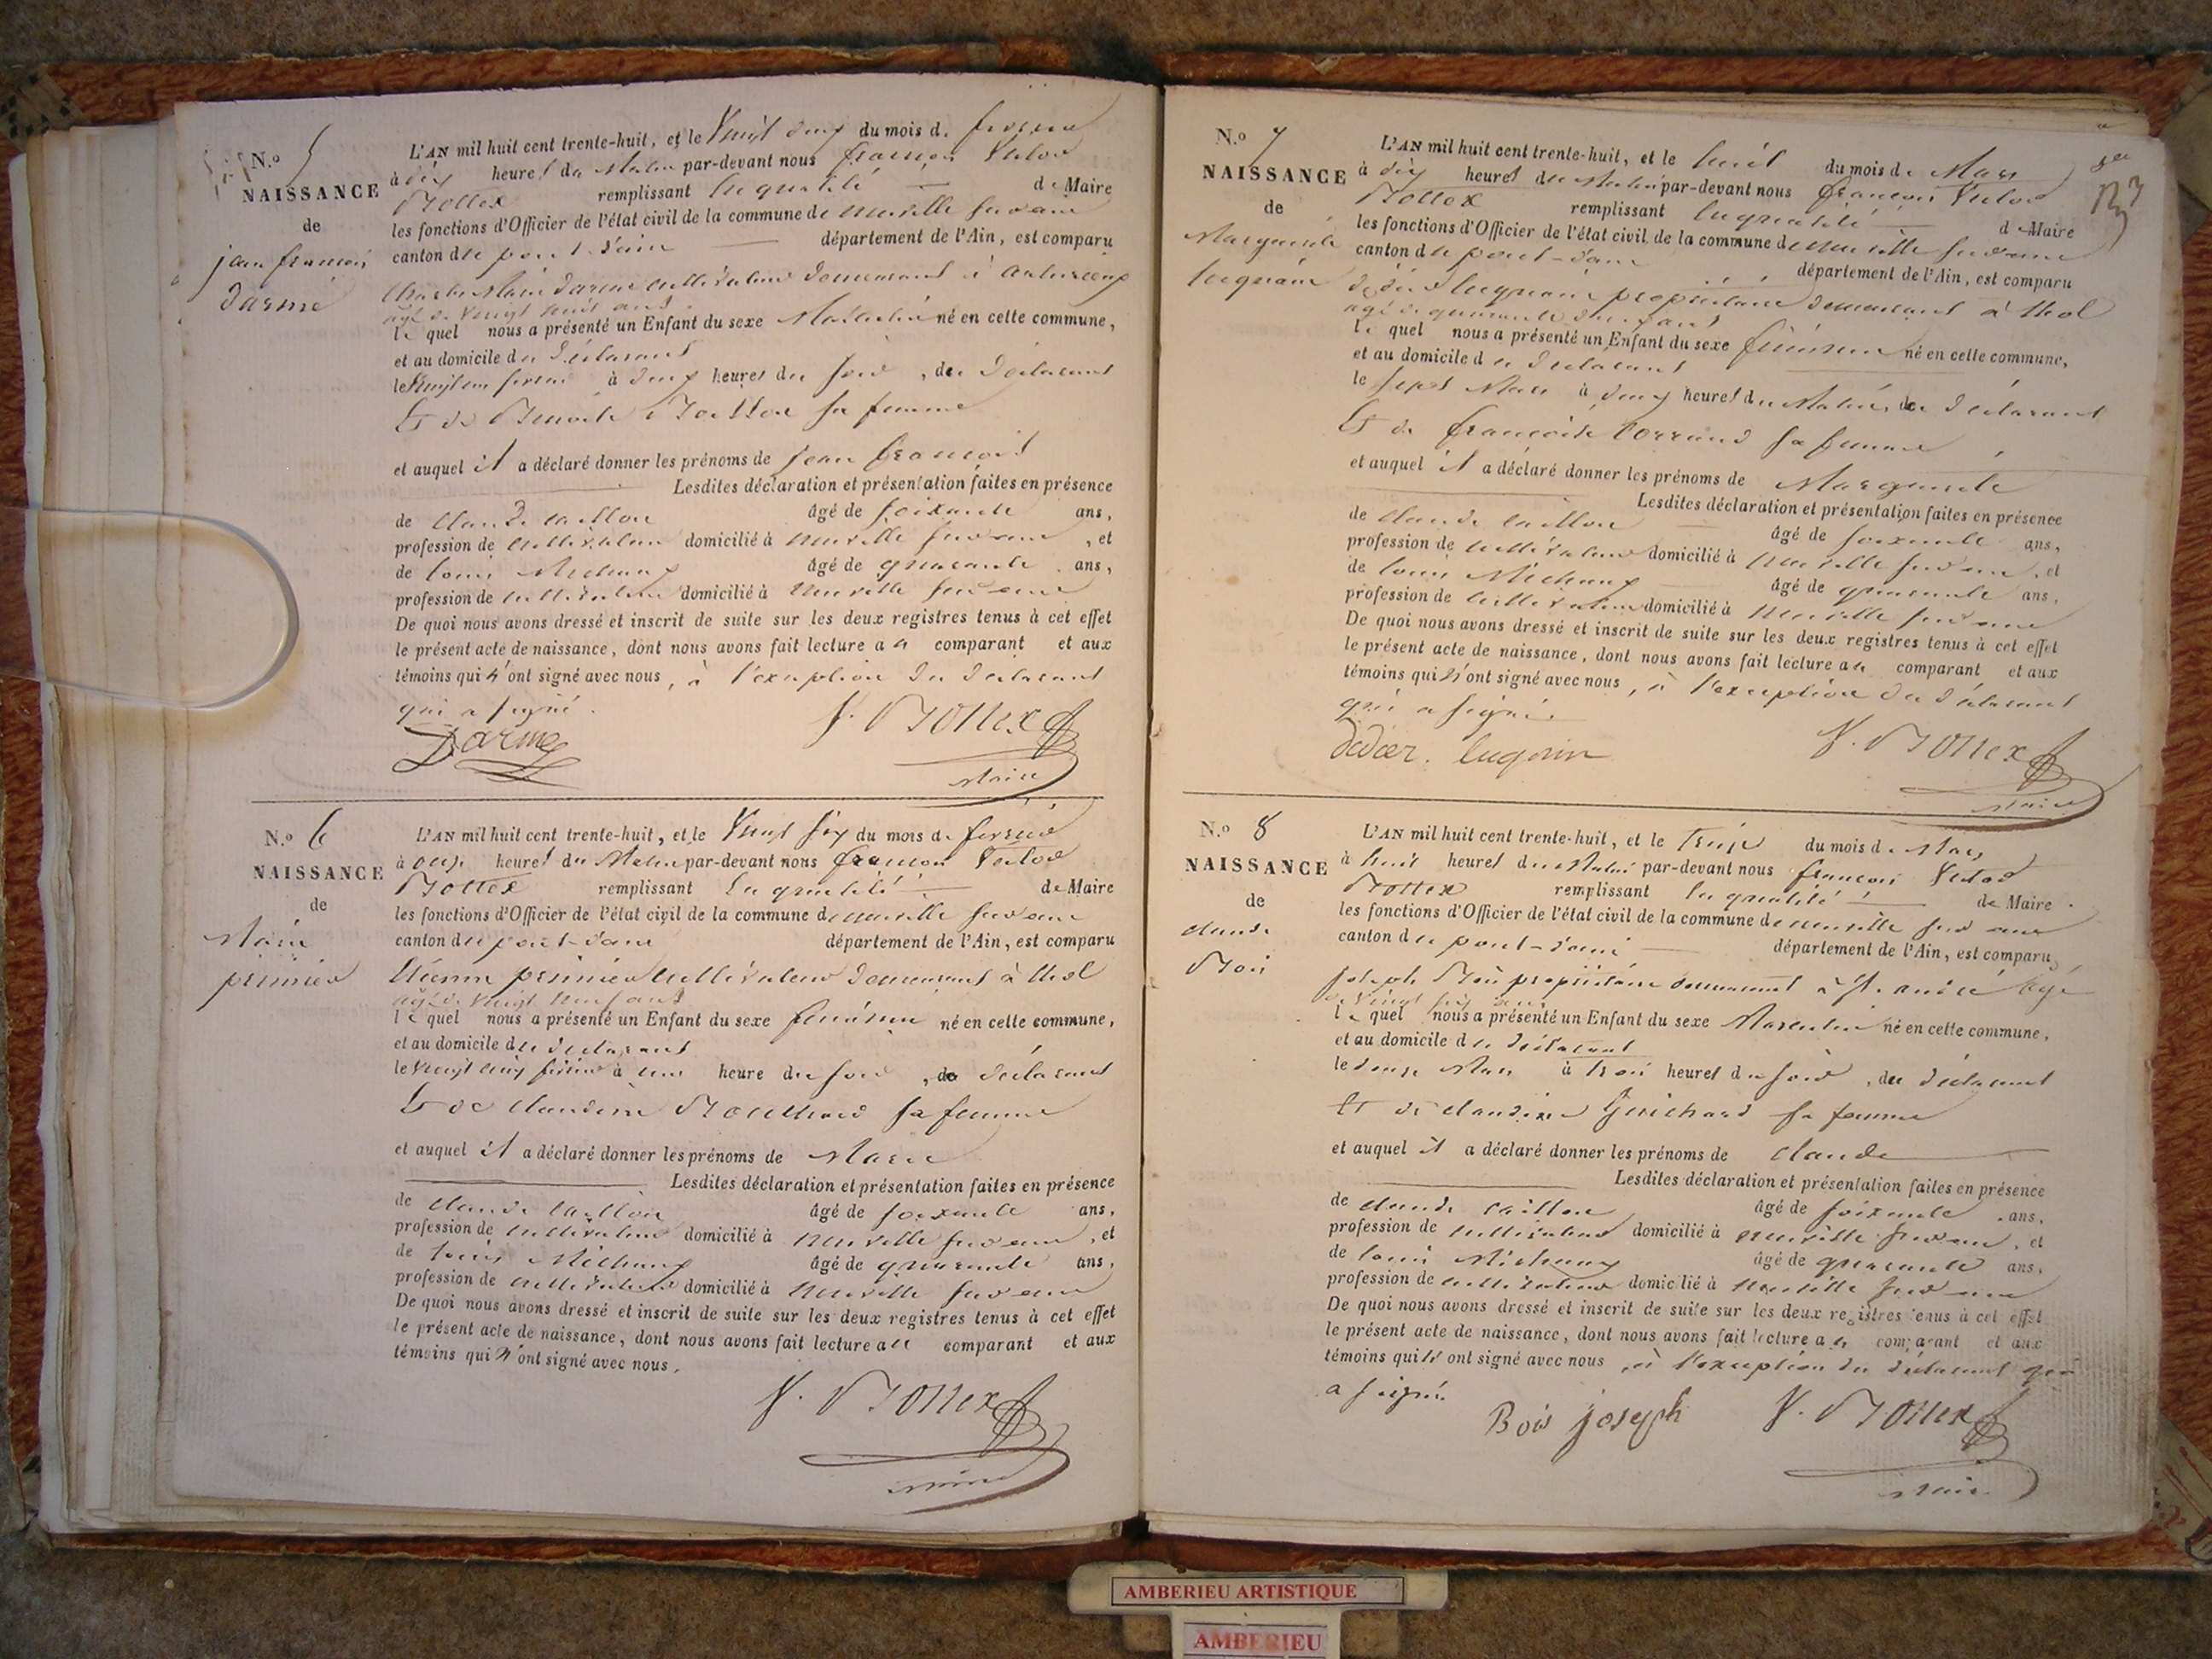 N.o 5
NAISSANCE
de
jean françois
Darme
L'AN mil huit cent trente-huit, et le Vingt deux du mois de fevrier
à dix heures du Matin par-devant nous françois Victor
Bottex remplissant la qualité de Maire
les fonctions d'Officier de l'état civil de la commune de neuville sur ain
canton du pont d'ain département de l'Ain, est comparu
Charles Marie Darme cultivateur demeurant à
agé de Vingt huit ans
le quel nous a présenté un Enfant du sexe Masculin né en cette commune,
et au domicile du déclarant
le Vingt un fevrier à deux heures du soir, du déclarant
Et de Benoite sa femme
et auquel il a déclaré donner les prénoms de jean françois
Lesdites déclaration et présentation faites en présence
de Claude Caillon âgé de soixante ans,
profession de cultivateur domicilié à neuville sur ain, et
de Louis Michaux âgé de quarante ans,
profession de cultivateur domicilié à neuville sur ain
De quoi nous avons dressé et inscrit de suite sur les deux registres tenus à cet effet
le présent acte de naissance, dont nous avons fait lecture au comparant et aux
témoins qui n'ont signé avec nous, à l'exception du déclarant
qui a signé.
Darme V. Bottex
Maire
N.o 6
NAISSANCE
de
Marie
pernier
L'AN mil huit cent trente-huit, et le Vingt six du mois de fevrier
à onze heures du Matin par-devant nous françois Victor
Bottex remplissant la qualité de Maire
les fonctions d'Officier de l'état civil de la commune de neuville sur ain
canton du pont-d'ain département de l'Ain, est comparu
Etienne cultivateur demeurant à thol
agé de Vingt neuf ans
le quel nous a présenté un Enfant du sexe féminin né en cette commune,
et au domicile du déclarant
le Vingt cinq fevrier à une heure du soir, du déclarant
Et de Claudine Bouchard sa femme
et auquel il a déclaré donner les prénoms de Marie
Lesdites déclaration et présentation faites en présence
de Claude Caillon âgé de soixante ans,
profession de cultivateur domicilié à neuville sur ain, et
de Louis Michaux âgé de quarante ans,
profession de cultivateur domicilié à neuville sur ain
De quoi nous avons dressé et inscrit de suite sur les deux registres tenus à cet effet
le présent acte de naissance, dont nous avons fait lecture au comparant et aux
témoins qui n'ont signé avec nous.
V. Bottex
maire
N.o 7
NAISSANCE
de
Marguerite
luquain
L'AN mil huit cent trente-huit, et le huit du mois de Mars
à dix heures du Matin par-devant nous françois Victor
Bottex remplissant la qualité de Maire
les fonctions d'Officier de l'état civil de la commune de neuville sur ain
canton du pont-d'ain département de l'Ain, est comparu
didier luquain propriétaire demeurant à thol
agé de quarante ans
le quel nous a présenté un Enfant du sexe féminin né en cette commune,
et au domicile du déclarant
le sept Mars à deux heures du Matin, du déclarant
Et de françoise Corrand sa femme
et auquel il a déclaré donner les prénoms de Marguerite
Lesdites déclaration et présentation faites en présence
de Claude Caillon âgé de soixante ans,
profession de cultivateur domicilié à neuville sur ain, et
de Louis Michaux âgé de quarante ans,
profession de cultivateur domicilié à neuville sur ain
De quoi nous avons dressé et inscrit de suite sur les deux registres tenus à cet effet
le présent acte de naissance, dont nous avons fait lecture au comparant et aux
témoins qui n'ont signé avec nous, à l'exception du déclarant
qui a signé.
V. Bottex
Maire
N.o 8
NAISSANCE
de
Claude
Bois
L'AN mil huit cent trente-huit, et le Treize du mois de Mars
à huit heures du Matin par-devant nous françois Victor
Bottex remplissant la qualité de Maire
les fonctions d'Officier de l'état civil de la commune de neuville sur ain
canton du pont-d'ain département de l'Ain, est comparu
joseph Bois propriétaire demeurant à St. andré agé
de Vingt six ans
le quel nous a présenté un Enfant du sexe Masculin né en cette commune,
et au domicile du déclarant
le douze Mars à trois heures du soir, du déclarant
Et de Claudine Guichard sa femme
et auquel il a déclaré donner les prénoms de Claude
Lesdites déclaration et présentation faites en présence
de Claude Caillon âgé de soixante ans,
profession de cultivateur domicilié à neuville sur ain, et
de Louis Michaux âgé de quarante ans,
profession de cultivateur domicilié à neuville sur ain
De quoi nous avons dressé et inscrit de suite sur les deux registres tenus à cet effet
le présent acte de naissance, dont nous avons fait lecture au comparant et aux
témoins qui n'ont signé avec nous, à l'exception du déclarant qui
a signé.
Bois joseph V. Bottex
maire
AMBERIEU ARTISTIQUE
AMBERIEU